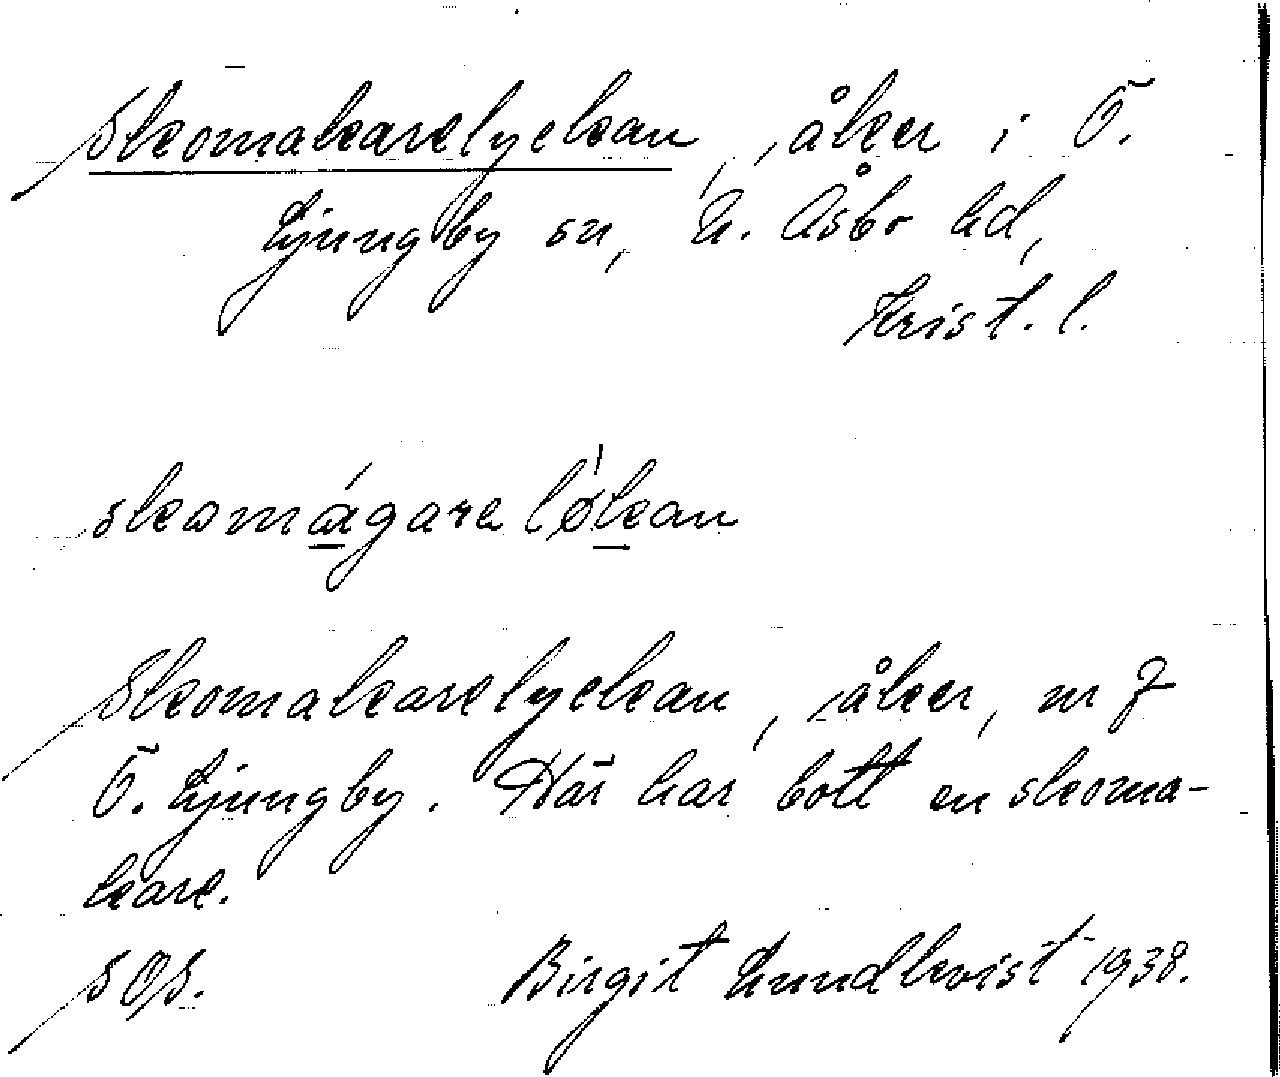 Skomakarelyckan, åker i Ö.
Ljungby sn, N. Åsbo hd,
Krist. l.
skomágare løkan
Skomakarelyckan, åker, nr 7
Ö. Ljungby. Här har bott en skoma-
kare.
SOS. Birgit Lundkvist 1938.